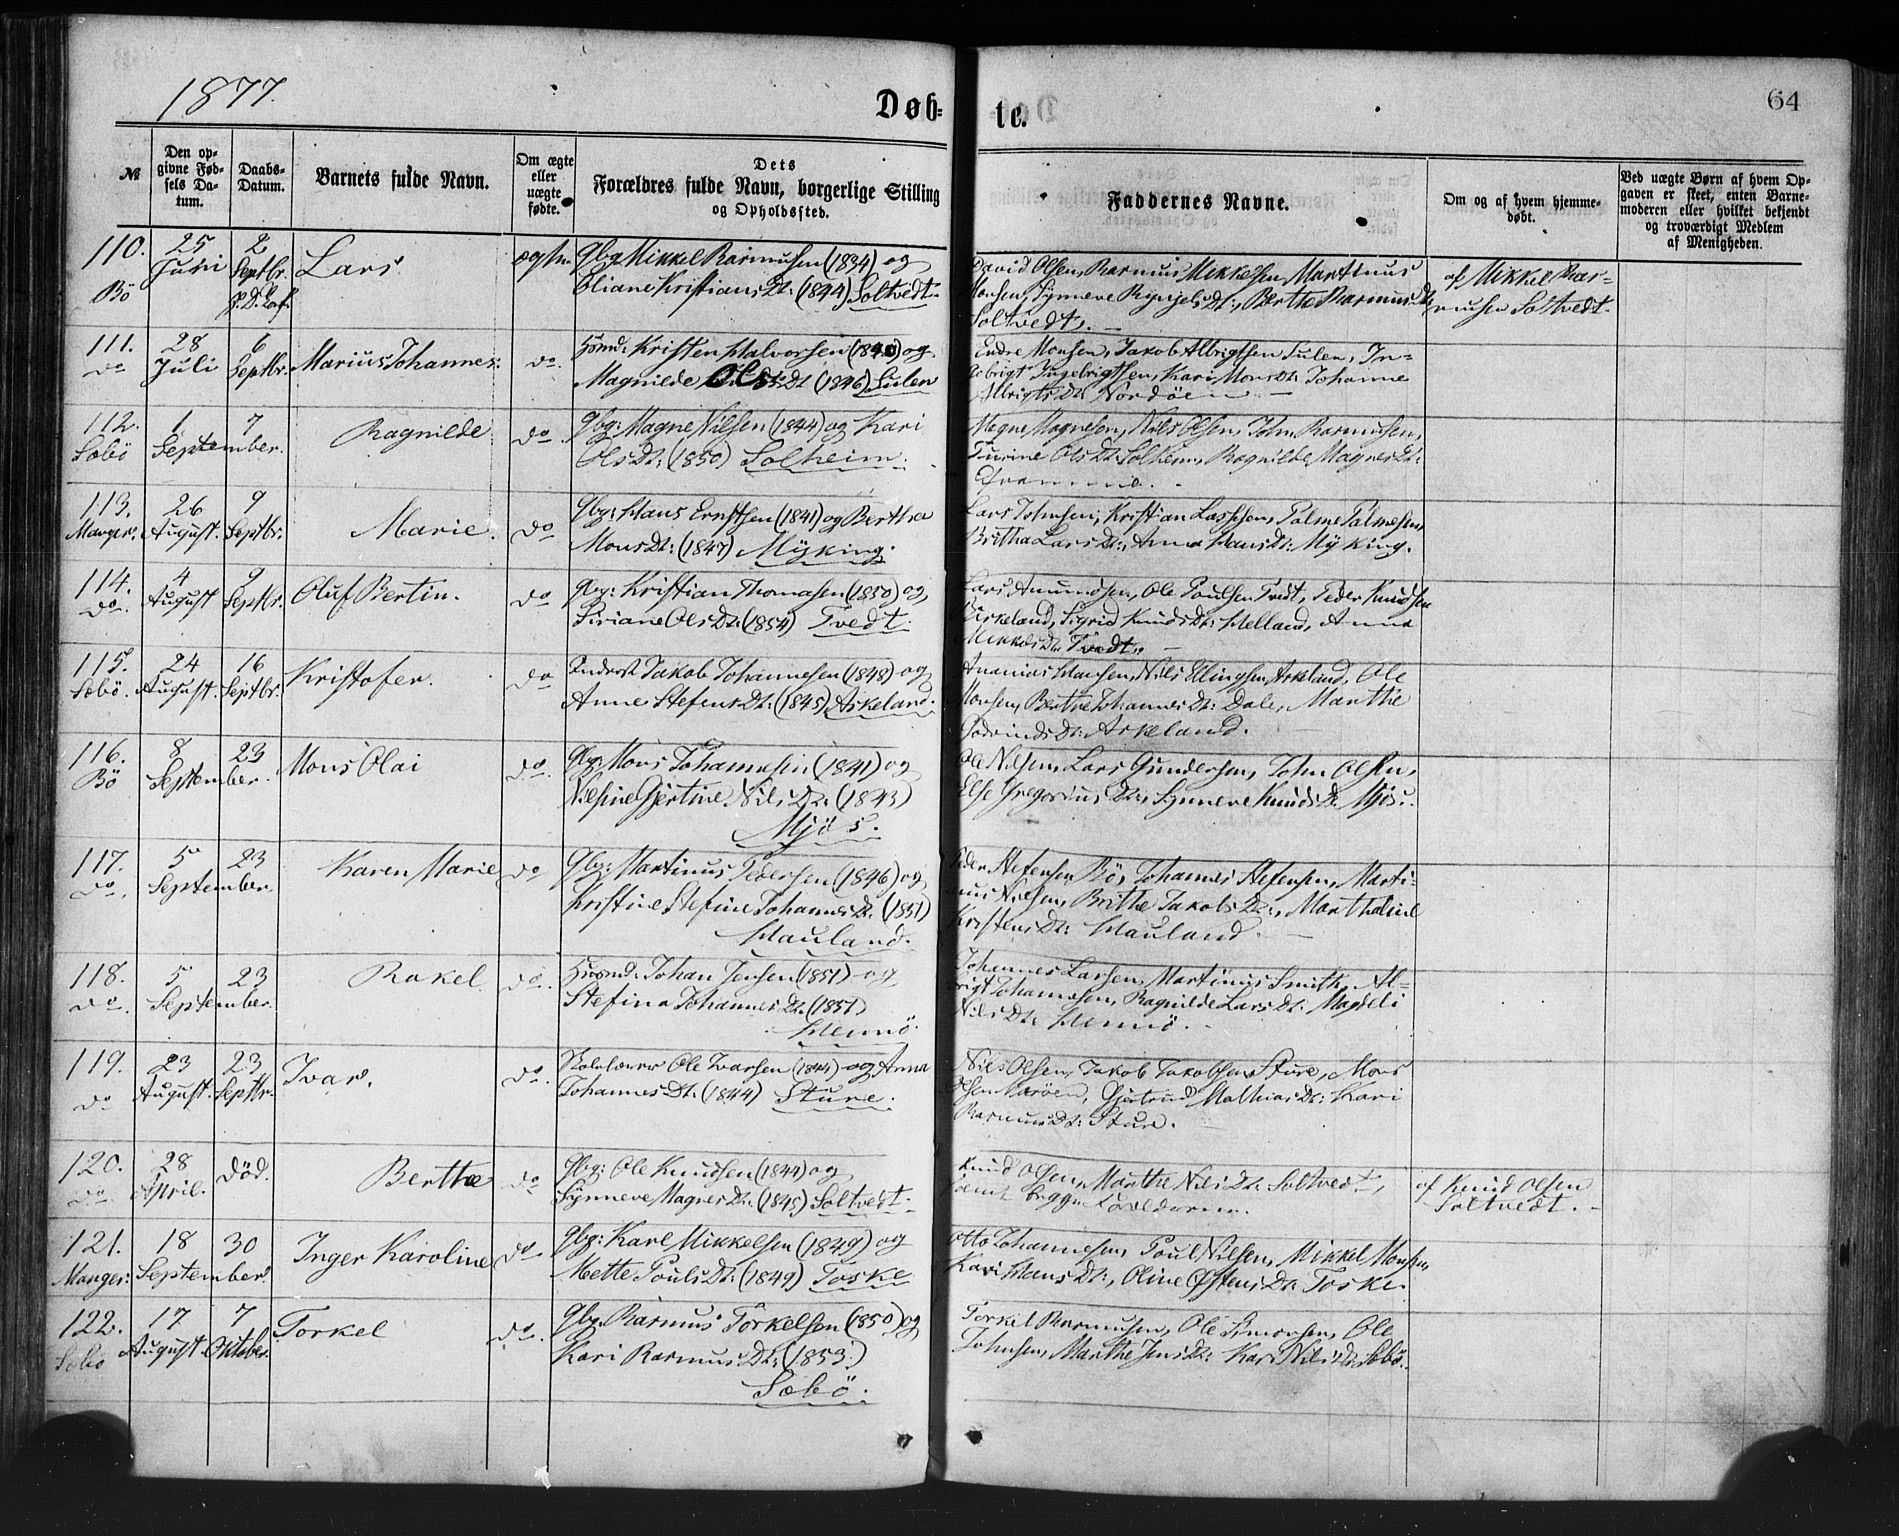 1877.
Døb-
te.
64
№
Den op-
givne Fød-
sels Da-
tum.
Daabs-
Datum.
Barnets fulde Navn.
Om ægte
eller
uægte
fødte.
Dets
Forældres fulde Navn, borgerlige Stilling
og Opholdssted.
Faddernes Navne.
Om og af hvem hjemme-
døbt.
Ved uægte Børn af hvem Op-
gaven er skeet, enten Barne-
moderen eller hvilket bekjendt
og troværdigt Medlem
af Menigheden.
110.
Bö
25
Juni
2
Septbr.
Lars
Gbg Mikkel Rasmussen (1834) og
Eliane Kristians Dt: (1844) Soltvedt.
David Olsen, Rasmus Mikkelsen, Martinus
Monsen, Synneve Dt:, Berthe Rasmus Dt
Soltvedt.
af Mikkel Ras-
mussen Soltvedt.
111.
do
28
Juli
6
Septbr.
Marius Johannes.
do.
Husmd: Kristen Halvorsen (1840) og
Magnilde Ols Dt (1846) Sulen
Endre Monsen, Jakob Albrigtsen Sulen, In-
gebrigt Ingebrigtsen, Kari Mons Dt: Johanne
Albrigts Dt: Nordöen
112.
Sæbö
1
7
September.
Ragnilde
do
Gbg: Magne Nilsen (1844) og Kari
Ols Dt: (1850) Solheim.
Magne Magnesen, Nils Olsen, John Rasmussen,
Turine Ols Dt: Solheim, Ragnilde Magnes Dt:
113.
Manger.
26
August.
9
Septbr.
Marie.
do
Gbg: Hans Ernstsen (1841) og Bertha
Mons Dt: (1847) Myking.
Lars Johnsen, Kristian Lassesen, Palme Palmesen,
Britha Lars Dt:, Anna Hans Dt: Myking.
114.
do.
4
August
9
Septbr.
Oluf Bertin.
do
Gbg: Kristian Thomasen (1850) og
Siriane Ols Dt: (1854) Tvedt.
Lars Amundsen, Ole Poulsen Tvedt, Peder Knudsen
Birkeland, Sigrid Knuds Dt: Helland, Anna
Mikkels Dt: Tvedt.
115.
Sæbö.
24
August.
16
Septbr.
Kristofer.
do
Inderst Jakob Johannesen (1848) og
Anne Stefens Dt: (1845) Askeland.
Ananias Hansen, Nils Ellingsen Askeland, Ole
Monsen, Berthe Johannes Dt: Dale, Marthe
Dt: Askeland.
116.
Bö
8
23
September.
Mons Olai
do.
Gbg: Mons Johannesen (1841) og
Nilsine Gjertine Nils Dt: (1843)
Mjös.
Ole Nilsen, Lars Gundersen, John Olsen,
Else Gregorius Dt:, Synneve Knuds Dt Mjös.
117.
do.
5
23
September.
Karen Marie
do
Gbg: Martinus Pedersen (1846) og
Kristine Stefine Johannes Dt. (1851)
Hauland.
Peder Stefensen Bö, Johannes Stefensen, Marti-
nus Nilsen, Brithe Jakobs Dt:, Marthaline
Kristens Dt: Hauland.
118.
do.
5
23
September.
Rakel
do.
Husmd: Johan Jensen (1851) og
Stefina Johannes Dt. (1851)
Hennö.
Johannes Larsen, Martinus Smith, Al-
brigt Johannesen, Ragnilde Lars Dt: Magdeli
Nils Dt: Hennö.
119.
do
23
August.
23
Septbr.
Ivar.
do.
Skolelærer Ole Ivarsen (1844) og Anna
Johannes Dt: (1844) Sture.
Nils Olsen, Jakob Jakobsen Sture, Mons
Olsen, Gjertrud Mathias Dt: Kari
Rasmus Dt: Sture.
120.
do.
28
April.
Död.
Berthe
do
Gbg: Ole Knudsen (1844) og
Synneve Magnes Dt: (1845) Soltvedt.
Knud Olsen, Marthe Nils Dt: Soltvedt,
samt begge Forældrene.
af Knud Olsen
Soltvedt.
121.
Manger:
18
30
September.
Inger Karoline
do.
Gbg: Karl Mikkelsen (1849) og
Mette Pouls Dt: (1849) Toske
Otto Johannesen, Poul Nilsen, Mikkel Monsen,
Kari Hans Dt:, Oline Östens Dt: Toske.
122.
Sæbö
17
August.
7
Oktober.
Torkel
do.
Gbg Rasmus Torkelsen (1850) og
Kari Rasmus Dt: (1853)
Sæbö.
Torkel Rasmussen, Ole Simonsen, Ole
Johnsen, Marthe Jens Dt: Kari Nils Dt: Sæbö.